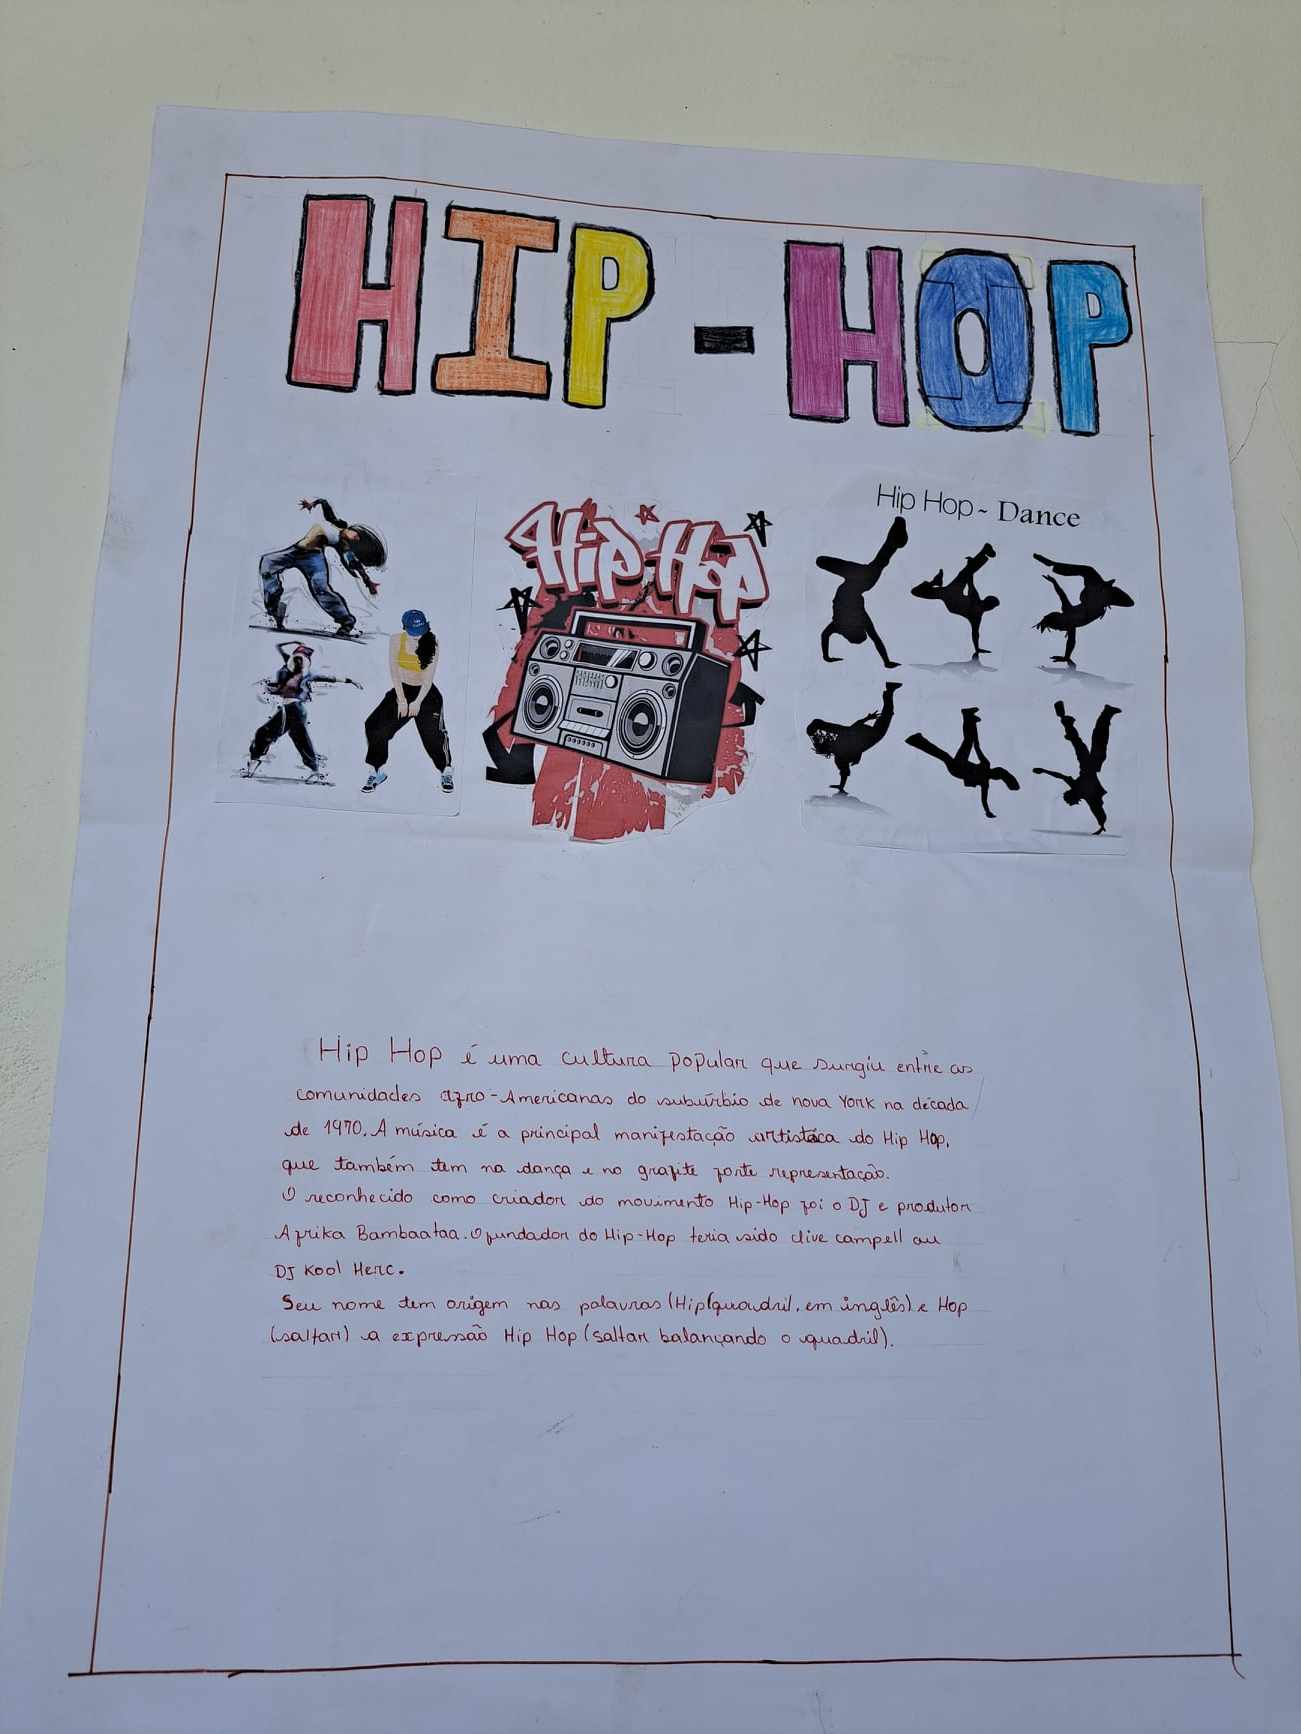 HIP-HOP
Hip Hop
Hip Hop - Dance
Hip Hop é uma cultura popular que surgiu entre as
comunidades afro-Americanas do subúrbio de nova York na década
de 1970. A música é a principal manifestação artística do Hip Hop,
que também tem na dança e no grafite forte representação.
O reconhecido como criador do movimento Hip-Hop foi o DJ e produtor
Afrika Bambaataa. O fundador do Hip-Hop teria sido clive campell ou
DJ Kool Herc.
Seu nome tem origem nas palavras (Hip(quadril, em inglês) e Hop
(saltar) a expressão Hip Hop (saltar balançando o quadril).